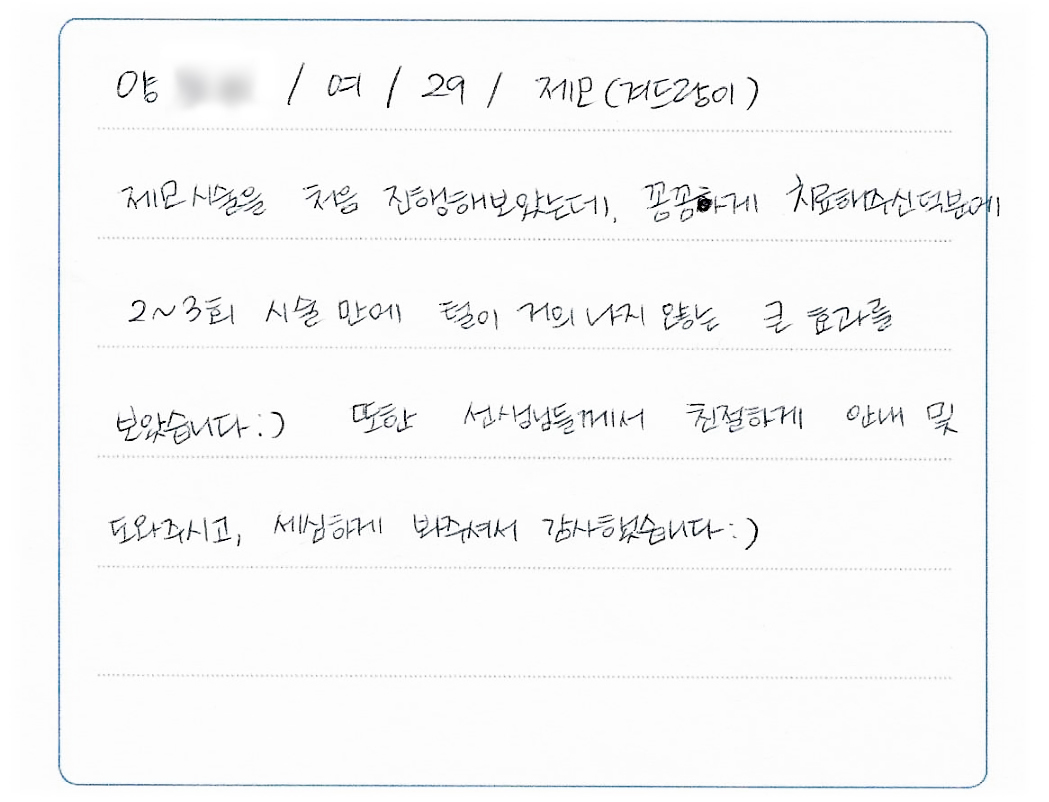 양 / 여 / 29 / 제모(겨드랑이)
제모시술을 처음 진행해보았는데, 꼼꼼하게 치료해주신덕분에
2~3회 시술 만에 털이 거의 나지 않는 큰 효과를
보았습니다:) 또한 선생님들께서 친절하게 안내 및
도와주시고, 세심하게 봐주셔서 감사했습니다:)